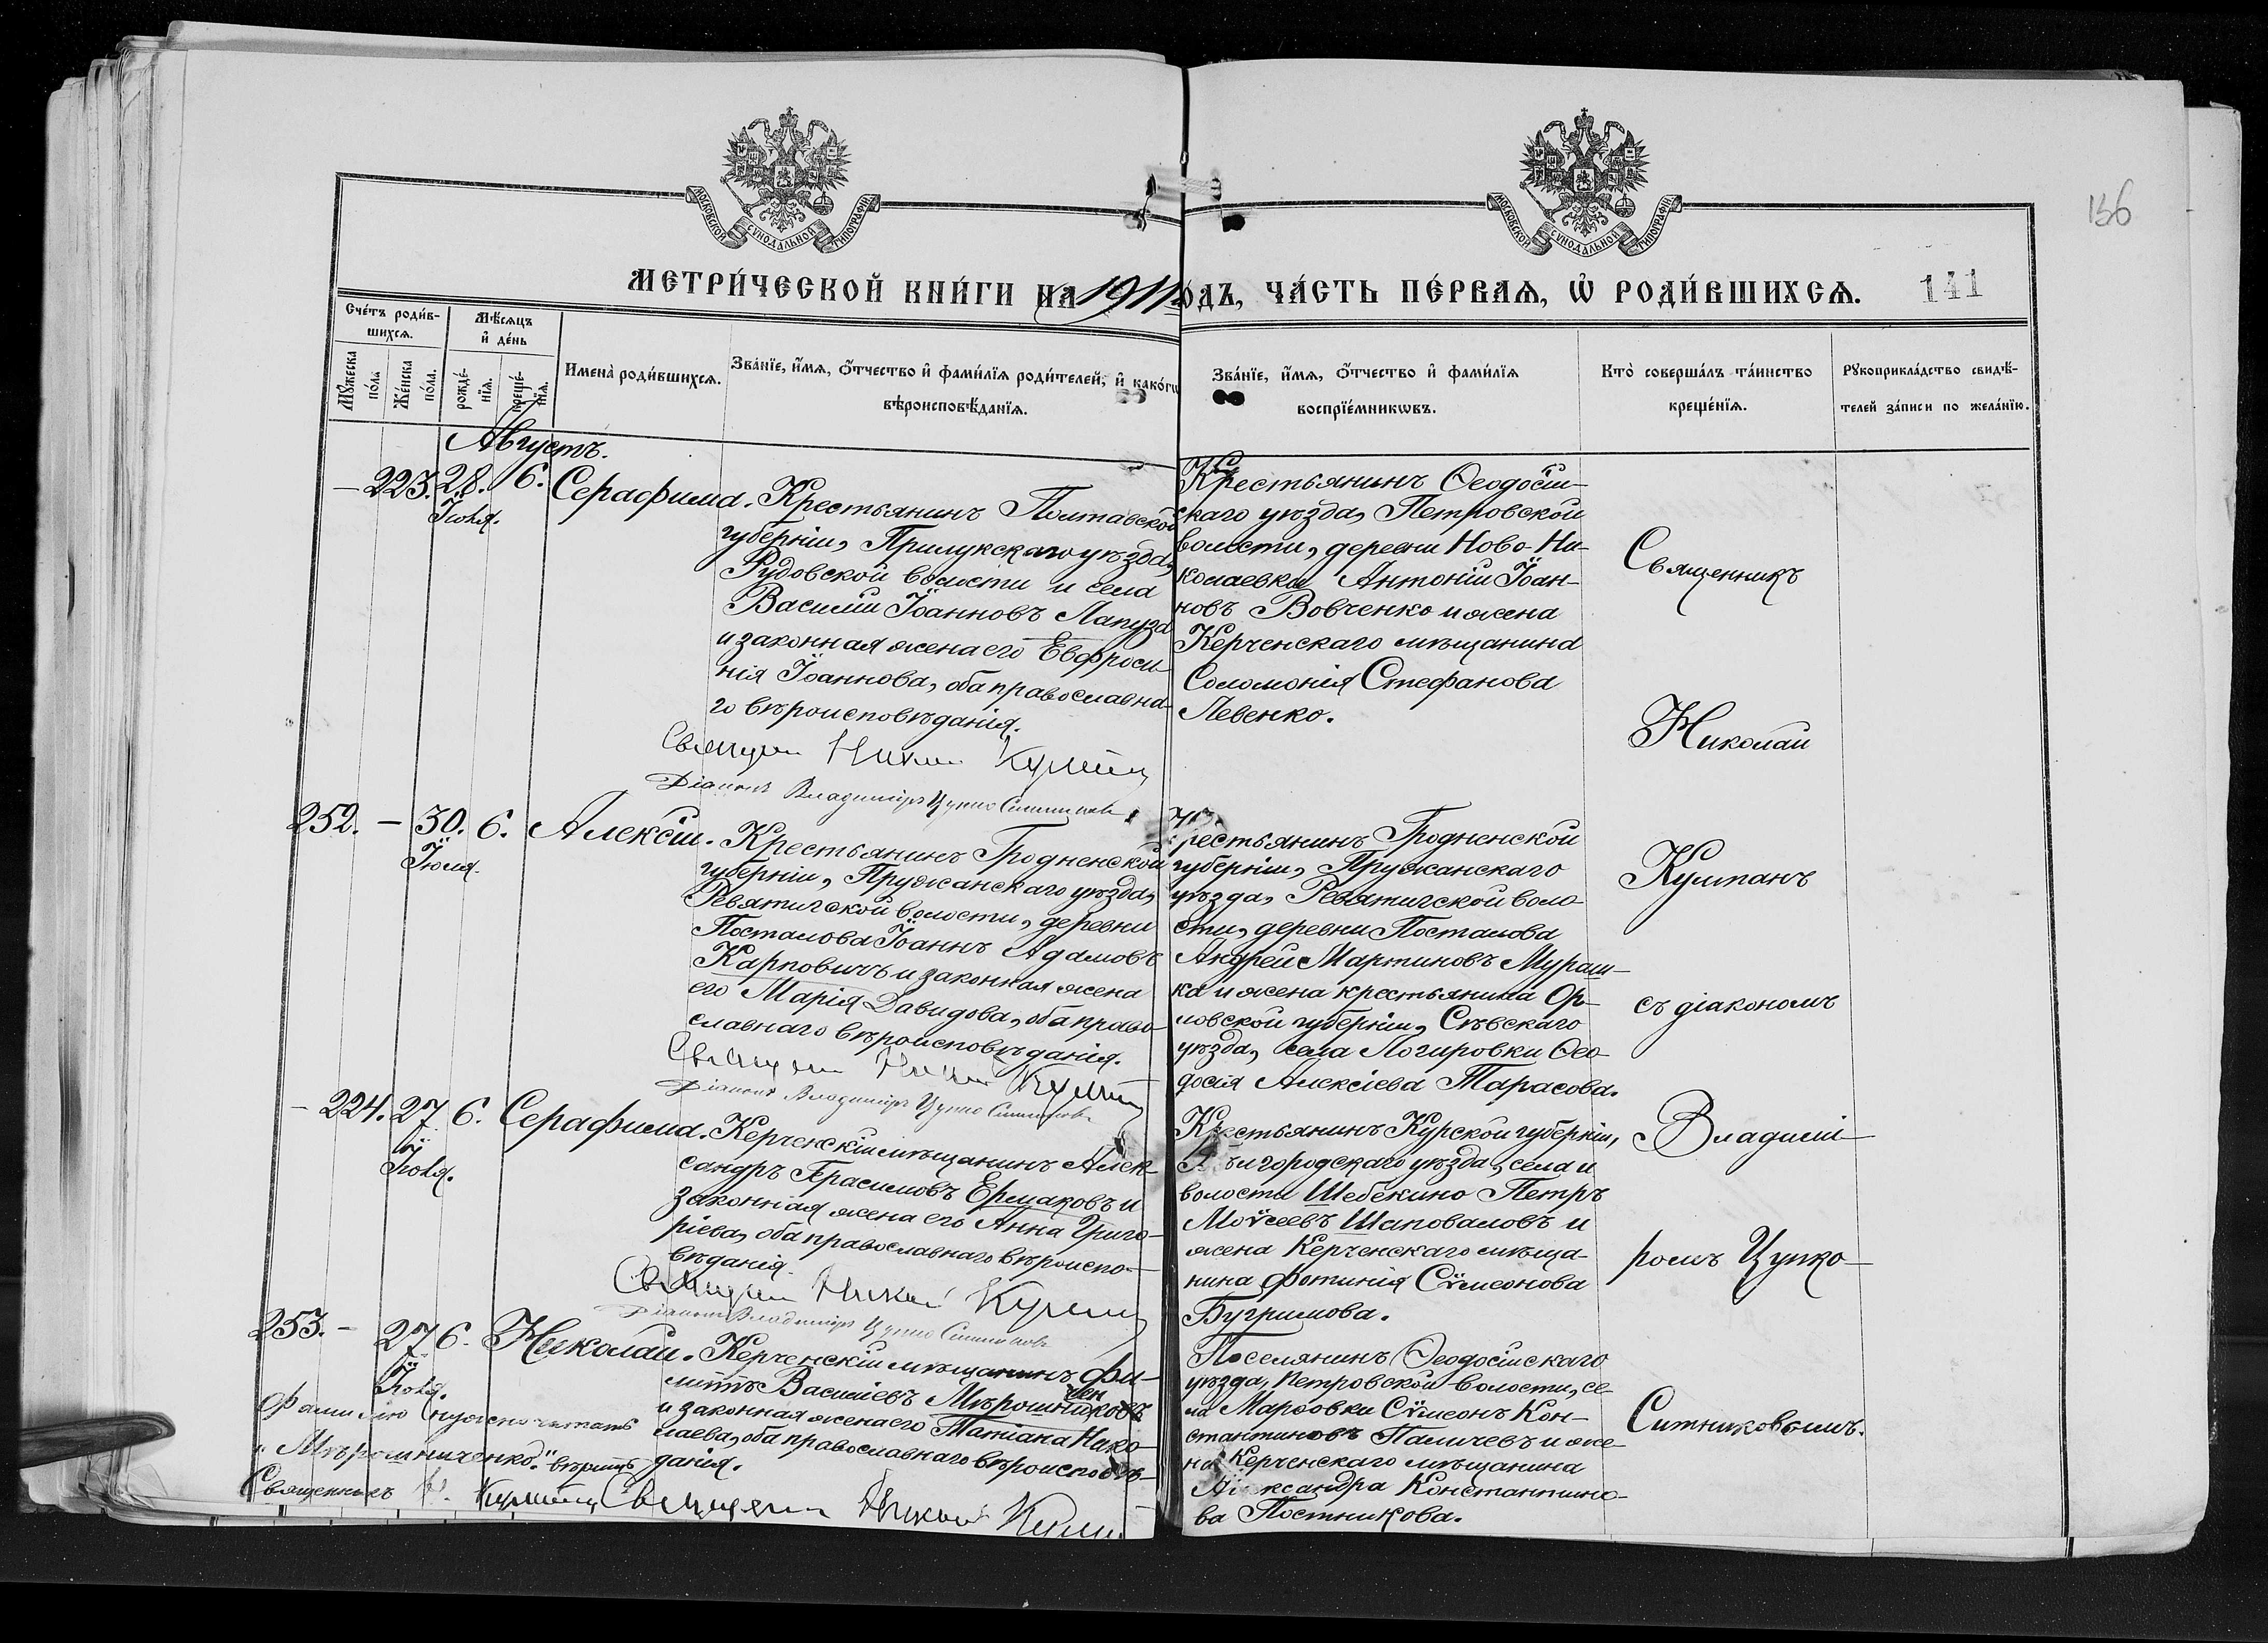 136
МОСКОВСКОЙ СѴНОДАЛЬНОЙ ТИПОГРАФІИ
МОСКОВСКОЙ СѴНОДАЛЬНОЙ ТИПОГРАФІИ
МЕТРИ́ЧЕСКОЙ КНИ́ГИ НА 1911 ОДЪ, ЧА́СТЬ ПЕ́РВАѦ, Ѡ҆ РОДИ́ВШИХСѦ. 141
Сче́тъ роди́в-
шихсѧ.
Мꙋ́жеска по́ла
Же́нска по́ла.
Мѣ́сѧцъ
и҆ де́нь
рожде́-
нїѧ.
креще́-
нїѧ.
Имена̀ роди́вшихсѧ.
Зва́нїе, и҆́мѧ, ѻ҆́тчество и҆ фами́лїѧ роди́телей, и҆ како́гѡ
вѣроисповѣ́данїѧ.
Зва́нїе, и҆́мѧ, ѻ҆́тчество и҆ фами́лїѧ
воспрїе́мникѡвъ.
Кто̀ соверша́лъ та́инство
креще́нїѧ.
Рꙋкоприкла́дство свидѣ́-
телей за́писи по жела́нїю.
Августъ.
— 223. 28. 6. Серафима.
Іюля.
Крестьянинъ Полтавской
губерніи, Прилукскаго уѣзда,
Рудовской волости и села
Василій Іоанновъ Лапуза
и законная жена его Евфроси-
нія Іоаннова, оба православна-
го вѣроисповѣданія.
Діаконъ Владиміръ Цупко Ситниковъ
Крестьянинъ Ѳеодосій-
скаго уѣзда, Петровской
волости, деревни Ново-Ни-
колаевки Антоній Іоан-
новъ Вовченко и жена
Керченскаго мѣщанина
Соломонія Стефанова
Левенко.
252. — 30. 6. Алексій.
Іюля.
Крестьянинъ Гродненской
губерніи, Пружанскаго уѣзда,
Ревятичской волости, деревни
Посталова Іоаннъ Адамовъ
Карповичъ и законная жена
его Марія Давидова, оба право-
славнаго вѣроисповѣданія.
Діаконъ Владиміръ Цупко Ситниковъ
Крестьянинъ Гродненской
губерніи, Пружанскаго
уѣзда, Ревятичской воло-
сти, деревни Посталова
Андрей Мартиновъ Мураш-
ка и жена крестьянина Ор-
ловской губерніи, Сѣвскаго
уѣзда, села Логировки Ѳео-
досія Алексіева Тарасова.
— 224. 27. 6. Серафима.
Іюля.
Керченскій мѣщанинъ Алек-
сандръ Герасимовъ Ермаковъ и
законная жена его Анна Григо-
ріева, оба православнаго вѣроиспо-
вѣданія.
Діаконъ Владиміръ Цупко Ситниковъ
Крестьянинъ Курской губерніи,
Бѣлгородскаго уѣзда, села и
волости Шебекино Петръ
Моѵсеевъ Шаповаловъ и
жена Керченскаго мѣща-
нина Фотинія Сѵмеонова
Бугримова.
253. — 27 6. Николай.
Іюля.
Керченскій мѣщанинъ Фи-
липпъ Василіевъ Мѣрошниковъ
чен
и законная жена его Татіана Нико-
лаева, оба православнаго вѣроисповѣ-
данія.
Фамилію нужно читать
"Мѣрошниченко." вѣритъ
Священникъ Н.
Поселянинъ Ѳеодосійскаго
уѣзда, Петровской волости, се-
ла Марѳовки Сѵмеонъ Кон-
стантиновъ Паличевъ и же-
на Керченскаго мѣщанина
Александра Константино-
ва Постникова.
Священникъ
Николай
Кулпанъ
съ діакономъ
Владимі-
ромъ Цупко-
Ситниковымъ.